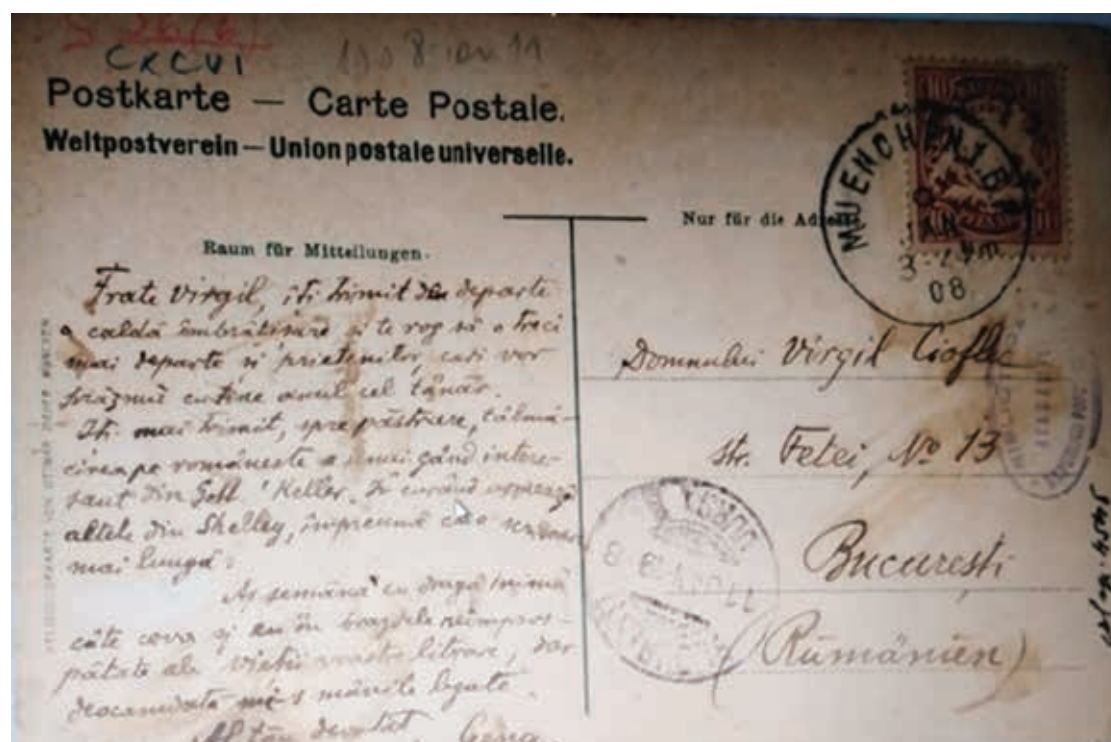 CXCVI
Postkarte — Carte Postale.
Weltpostverein — Union postale universelle.
Nur für die Adresse.
Raum für Mitteilungen.
MUENCHEN.1.B
3-4 Nm
08
Frate Virgil, îți trimit din departe
o caldă îmbrățișare și te rog să o treci
mai departe și prietenilor, cari vor
prăznui cu tine anul cel tânăr.
Iți mai trimit, spre păstrare, tălmă-
cirea pe românește a unui gând intere-
sant din Gotf. Keller. În curând urmează
altele din Shelley, împreună cu o
mai lungă.
Aș semăna cu dragă inimă
câte ceva și eu în brazdele neîmpros-
pătate ale vieții voastre litrare, dar
deocamdată mi-s mânile legate.
Al tău devotat
Domnului Virgil Cioflec
str. Fetei, No 13
București
(Rumänien)